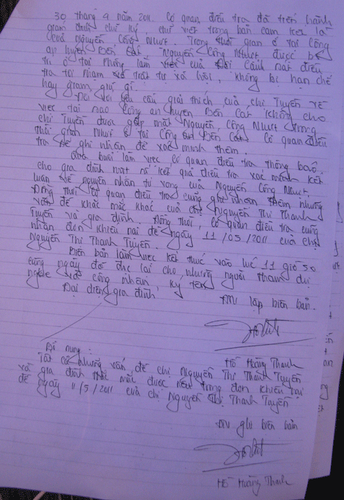 30 tháng 4 năm 2011. Cơ quan điều tra đã tiến hành
giám định chữ ký, chữ viết trong bản cam kết là
của Nguyễn Công Nhựt. Trong thời gian ở tại Công
an huyện Bến Cát Nguyễn Công Nhựt được bố
trí ở tại phòng làm việc của Đội Cảnh sát điều
tra tội phạm về trật tự xã hội, không bị hạn chế
hay giam, giữ gì.
Đối với yêu cầu giải thích của chị Tuyền về
việc tại sao Công an huyện Bến Cát không cho
chị Tuyền được gặp mặt Nguyễn Công Nhựt trong
thời gian Nhựt ở tại Công an Bến Cát Cơ quan điều
tra sẽ ghi nhận để xác minh thêm.
Qua buổi làm việc Cơ quan điều tra thông báo
cho gia đình một số kết quả điều tra xác minh kết
luận về nguyên nhân tử vong của Nguyễn Công Nhựt.
Đồng thời Cơ quan điều tra cũng ghi nhận thêm những
vấn đề khác của chị Nguyễn Thị Thanh
Tuyền và gia đình. Đồng thời, Cơ quan điều tra cũng
nhận đơn khiếu nại đề ngày 11/05/2011 của chị
Nguyễn Thị Thanh Tuyền.
Biên bản làm việc kết thúc vào lúc 11 giờ 50
cùng ngày đọc lại cho những người tham dự
nghe và công nhận, ký tên.
Đại diện gia đình
Người lập biên bản.
Hồ Hoàng Thanh
Bổ sung:
Tất cả những vấn đề chị Nguyễn Thị Thanh Tuyền
và gia đình thắc mắc được nêu trong đơn khiếu nại
đề ngày 11/5/2011 của chị Nguyễn Thị Thanh Tuyền
Người ghi biên bản
Hồ Hoàng Thanh